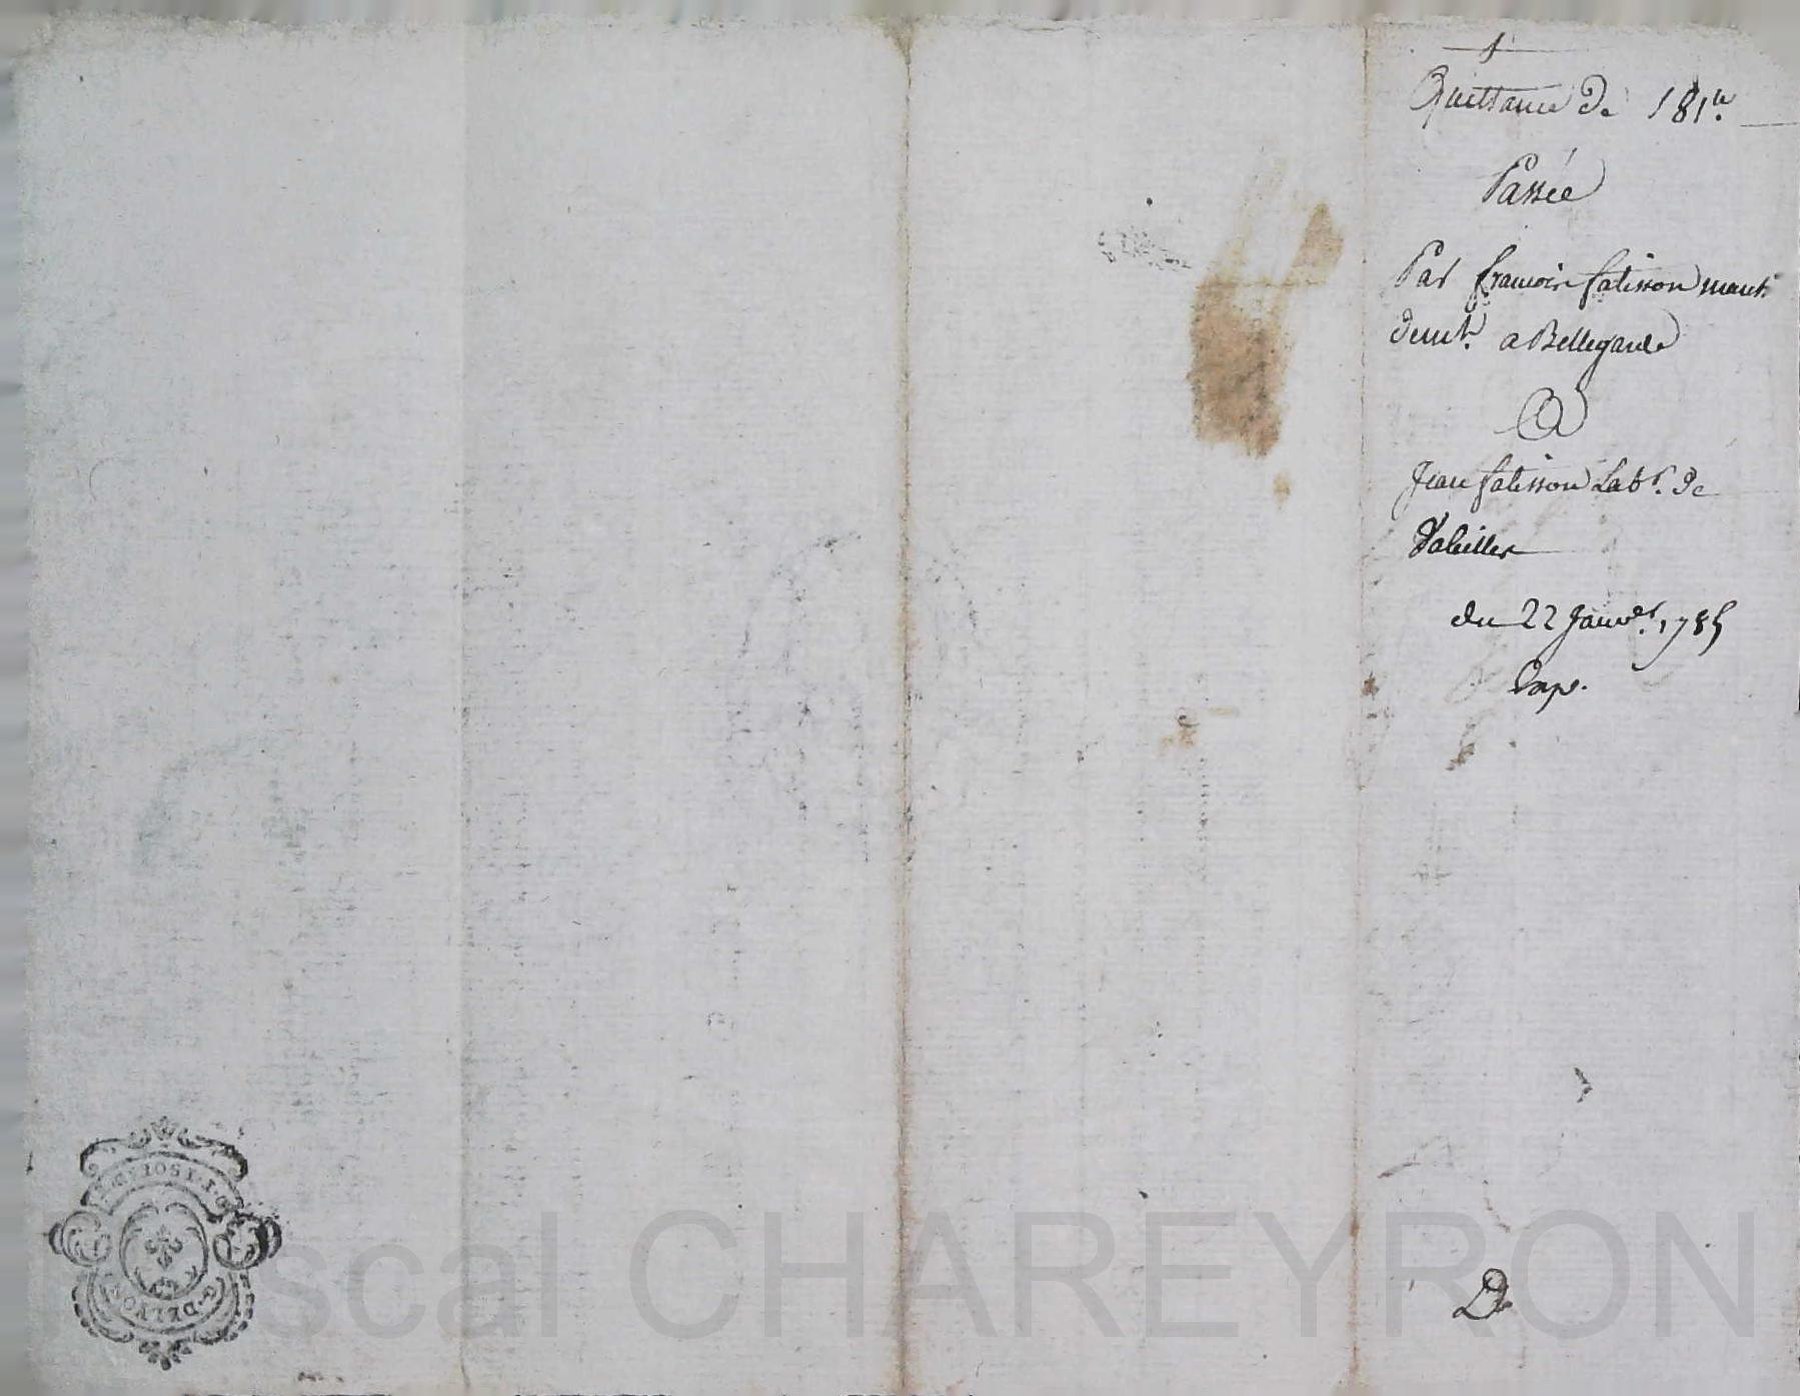 Quittance de 181ᵗᵗ.
Passée
Par francois fatisson march.
demt. a Bellegarde
A
Jean fatisson Labr. de
du 22 Janver. 1785
Exp.
G. DE LYON
scal CHAREYRON